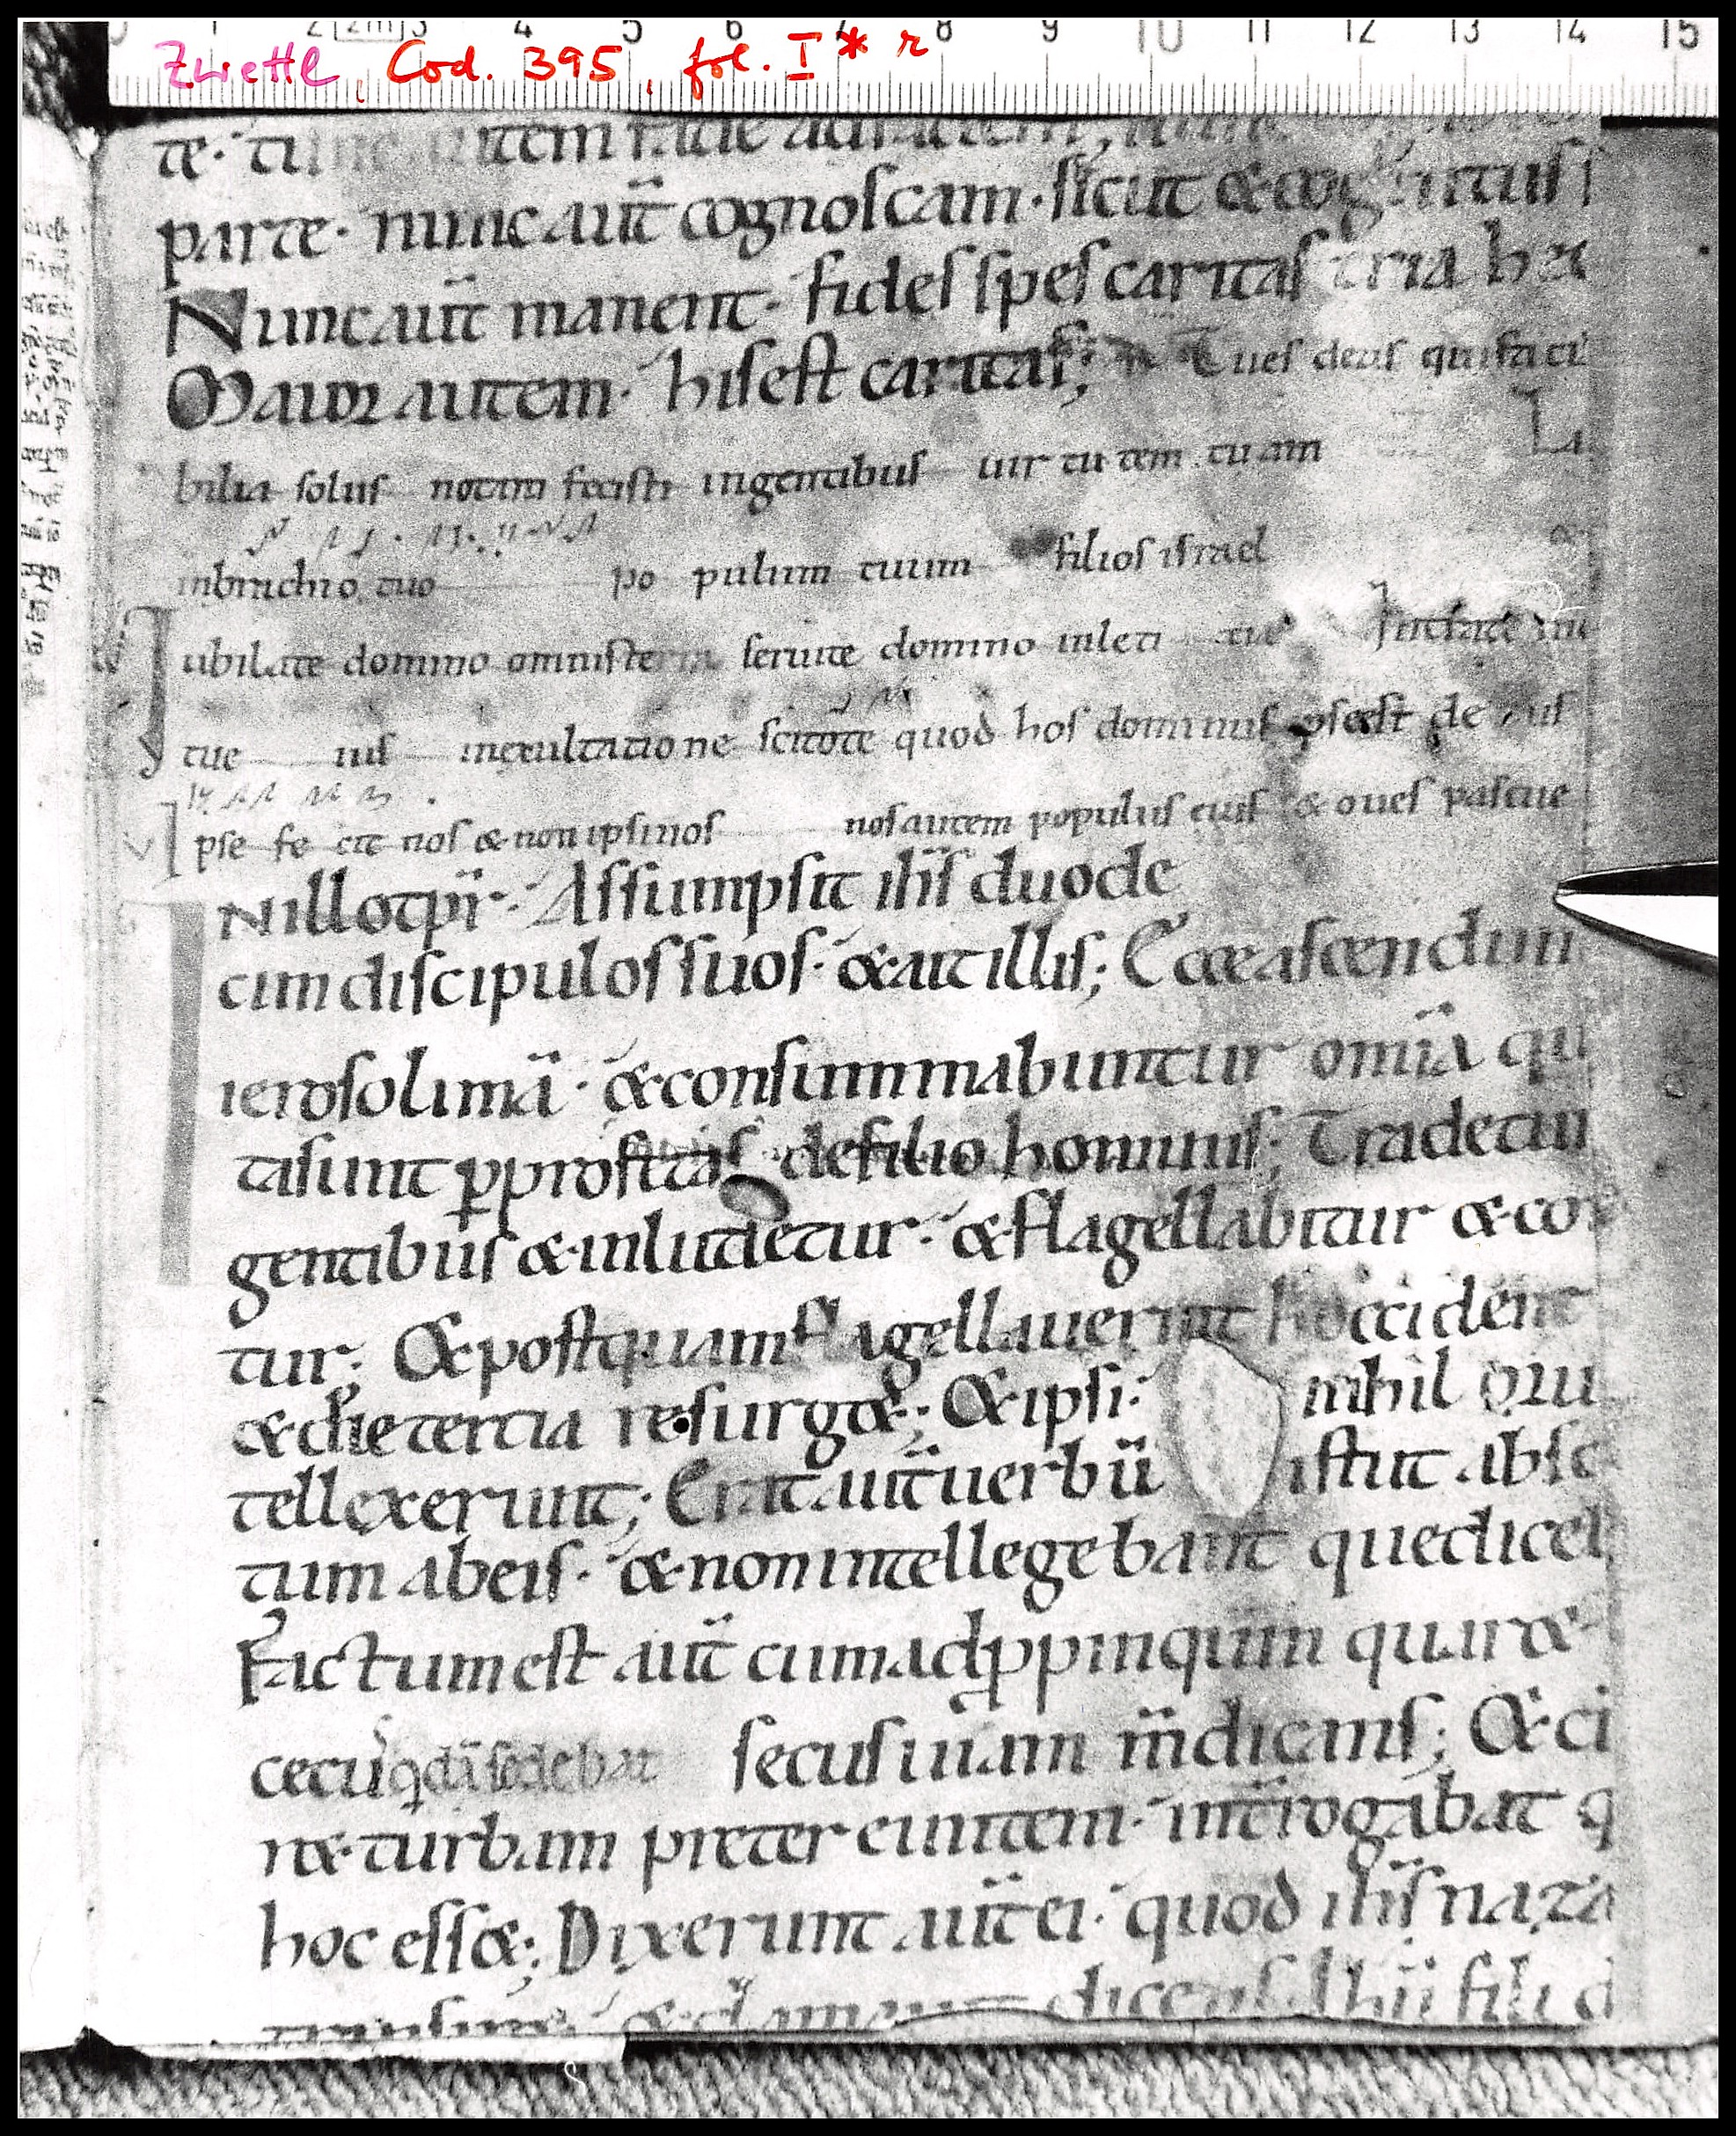 0 1 2 [2m] 3 4 5 6 7 8 9 10 11 12 13 14 15
Zwettl, Cod. 395, fol. I* r
te· autem facie ad
parte· nunc aut̄ cognoscam· sicut & cognitus
Nunc aut̄ manent· fides spes caritas tria hec
Maior autem· his est caritas; Tu es deus qui faci
bilia solus notam fecisti in gentibus uir tu tem tuam
in brachio tuo po pulum tuum filios israel
Iubilate domino omnis terra seruite domino in leti tie Intrate
tue ius in exultatione scitote quod hos dominus ipse est de us
Ipse fe cit nos & non ipsi nos nos autem populus eius & oues pascue
IN illo tp̄r· Assumpsit ih̄s duode
cim discipulos suos· & ait illis; Ecce ascendim
ierosolimā· & consummabuntur om̄ia qu
ta sunt ꝑ profetas de filio hominis; Tradetur
gentibus & inludetur· & flagellabitur & con
tur; & postquam flagellauerint occident
& die tertia resurg&; & ipsi· nihil
tellexerunt; Erat aut̄ uerbū istut absc
tum ab eis· & non intellegebant que diceb
Factum est aut̄ cum adp̱pinquar&
cecus qdā sedebat secus uiam m̄dicans; & cū
r& turbam pretereuntem· int̄rogabat q
hoc ess&; Dixerunt aut̄ ei· quod ih̄s naza
transir& & clamauit dicens ih̄u fili d